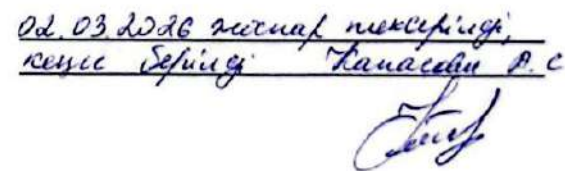 02.03.2026 жоспар тексерілді,
кеңес берілді Капасова А.С